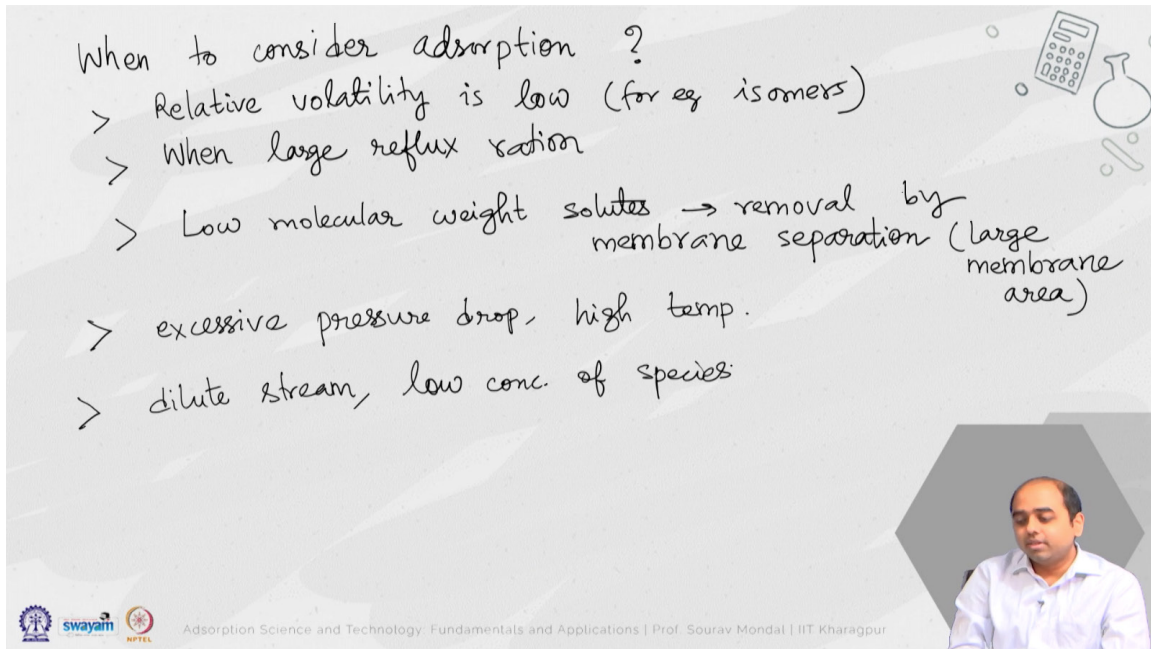 When to consider adsorption ?
> Relative volatility is low (for eg isomers)
> When large reflux ration
> Low molecular weight solutes → removal by
membrane separation (large
membrane
area)
> excessive pressure drop, high temp.
> dilute stream, low conc. of species
swayam
NPTEL
Adsorption Science and Technology: Fundamentals and Applications | Prof. Sourav Mondal | IIT Kharagpur